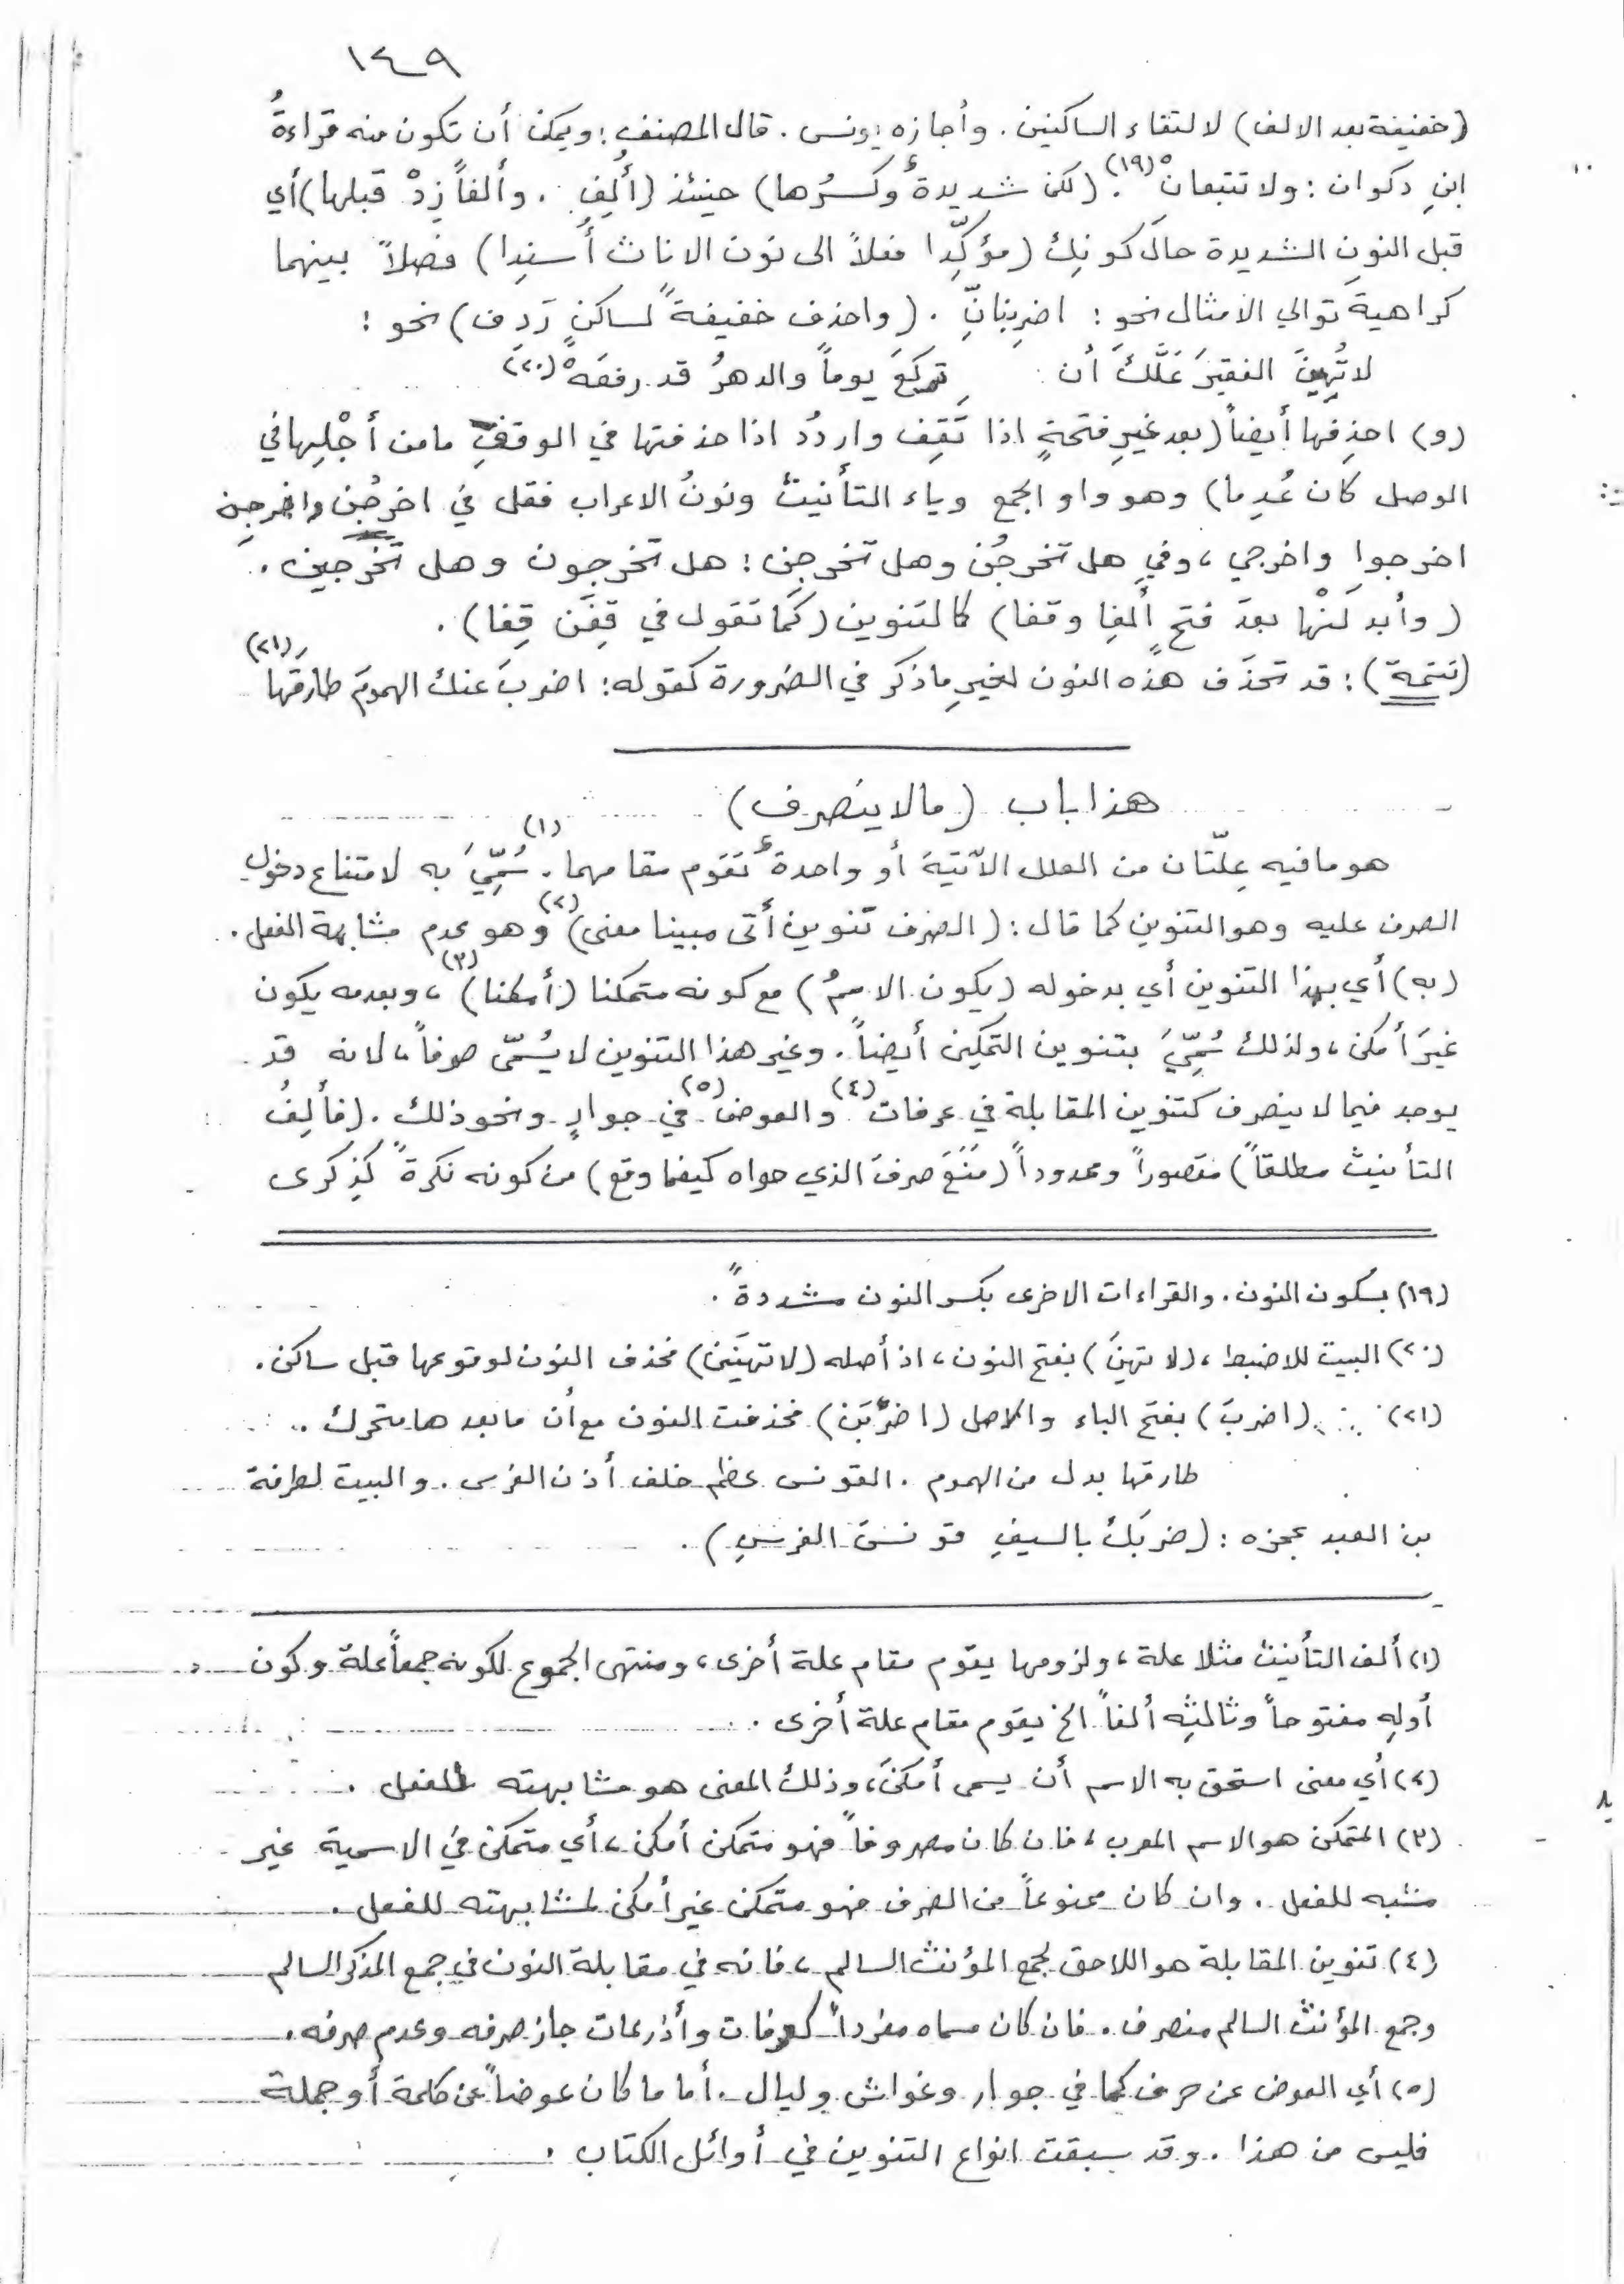 ١٤٩
(خفيفة بعد الالف) لالتقاء الساكنين. وأجازه يونس. قال المصنف: ويمكن أن تكون منه قراءةُ
ابنِ ذكوان: ولا تتبعانْ(١٩). (لكن شديدةٌ وكسرُها) حينئذ (أُلِف. وألفاً زِدْ قبلها) أي
قبل النون الشديدة حالَ كونِك (مؤكِّدا فعلاً الى نون الاناث أُسنِدا) فصلاً بينهما
كراهيةَ توالي الامثال نحو: اضرِبنانِّ. (واحذف خفيفةً لساكنٍ رَدِف) نحو:
لا تُهِينَ الفقيرَ عَلَّكَ أن تركَعَ يوماً والدهرُ قد رفعَهْ (٢٠)
(و) احذِفها أيضاً (بعد غيرِ فتحةٍ اذا تَقِف واردُد اذا حذفتها في الوقفِ ما من أجْلِها في
الوصل كان عُدِما) وهو واو الجمع وياء التأنيث ونونُ الاعراب فقل في اخرجُن واخرجِن
اخرجوا واخرجي، وفي هل تخرجُن وهل تخرجِن: هل تخرجون وهل تخرجين.
(وأبدلَنْها بعدَ فتحٍ ألِفا وقفا) كالتنوين (كما تقول في قِفَن قِفا).
(تتمة): قد تحذَف هذه النون لغيرِ ما ذكر في الضرورة كقوله: اضربَ عنك الهمومَ طارقَها (٢١)
هذا باب (مالاينصرف)
هو ما فيه عِلّتان من العلل الآتية أو واحدةٌ تقوم مقامهما(١). سُمِّيَ به لامتناع دخولِ
الصرف عليه وهو التنوين كما قال: (الصرف تنوين أتى مبينا معنى)(٢) وهو عدم مشابهة الفعل.
(به) أي بهذا التنوين أي بدخوله (يكون الاسمُ) مع كونه متمكنا (أمكنا)(٣)، وبعدمه يكون
غيرَ أمكن، ولذلك سُمِّيَ بتنوين التمكين أيضاً. وغير هذا التنوين لا يُسمّى صرفاً، لانه قد
يوجد فيما لا ينصرف كتنوين المقابلة في عرفات(٤) والعوض(٥) في جوارٍ ونحو ذلك. (فألِفُ
التأنيث مطلقاً) مقصوراً وممدوداً (مَنَعَ صرفَ الذي حواه كيفما وقع) من كونه نكرةً كذِكرى
(١٩) بسكون النون. والقراءات الاخرى بكسر النون مشددةً.
(٢٠) البيت للاضبط، (لا تهينَ) بفتح النون، اذ أصله (لا تهينَن) فحذف النون لوقوعها قبل ساكن.
(٢١) (اضربَ) بفتح الباء والاصل (اضربَن) فحذفت النون مع أن ما بعدها متحرك ..
طارقها بدل من الهموم. القونس عظم خلف أذن الفرس. والبيت لطرفة
بن العبد عجزه: (ضربَك بالسيفِ قونسَ الفرسِ).
(١) ألف التأنيث مثلا علة، ولزومها يقوم مقام علة أخرى، ومنتهى الجموع لكونه جمعاً علة وكون
أولِه مفتوحاً وثالثِه ألفاً الخ يقوم مقام علة أخرى.
(٢) أي معنى استحق به الاسم أن يسمى أمكنَ، وذلك المعنى هو مشابهته للفعل.
(٣) المتمكن هو الاسم المعرب، فان كان مصروفاً فهو متمكن أمكن، أي متمكن في الاسمية غير
مشبه للفعل. وان كان ممنوعاً من الصرف فهو متمكن غير أمكن لمشابهته للفعل.
(٤) تنوين المقابلة هو اللاحق لجمع المؤنث السالم، فانه في مقابلة النون في جمع المذكر السالم
وجمع المؤنث السالم منصرف. فان كان مسماه مفرداً كعرفات وأذرعات جاز صرفه وعدم صرفه.
(٥) أي العوض عن حرف كما في جوار وغواش وليال. أما ما كان عوضاً عن كلمة أو جملة
فليس من هذا. وقد سبقت انواع التنوين في أوائل الكتاب.